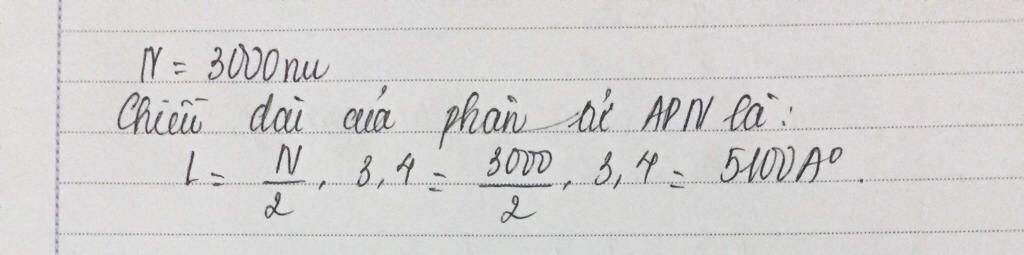 N = 3000nu
Chiều dài của phân tử ADN là:
L = N/2 . 3,4 = 3000/2 . 3,4 = 5100A⁰.